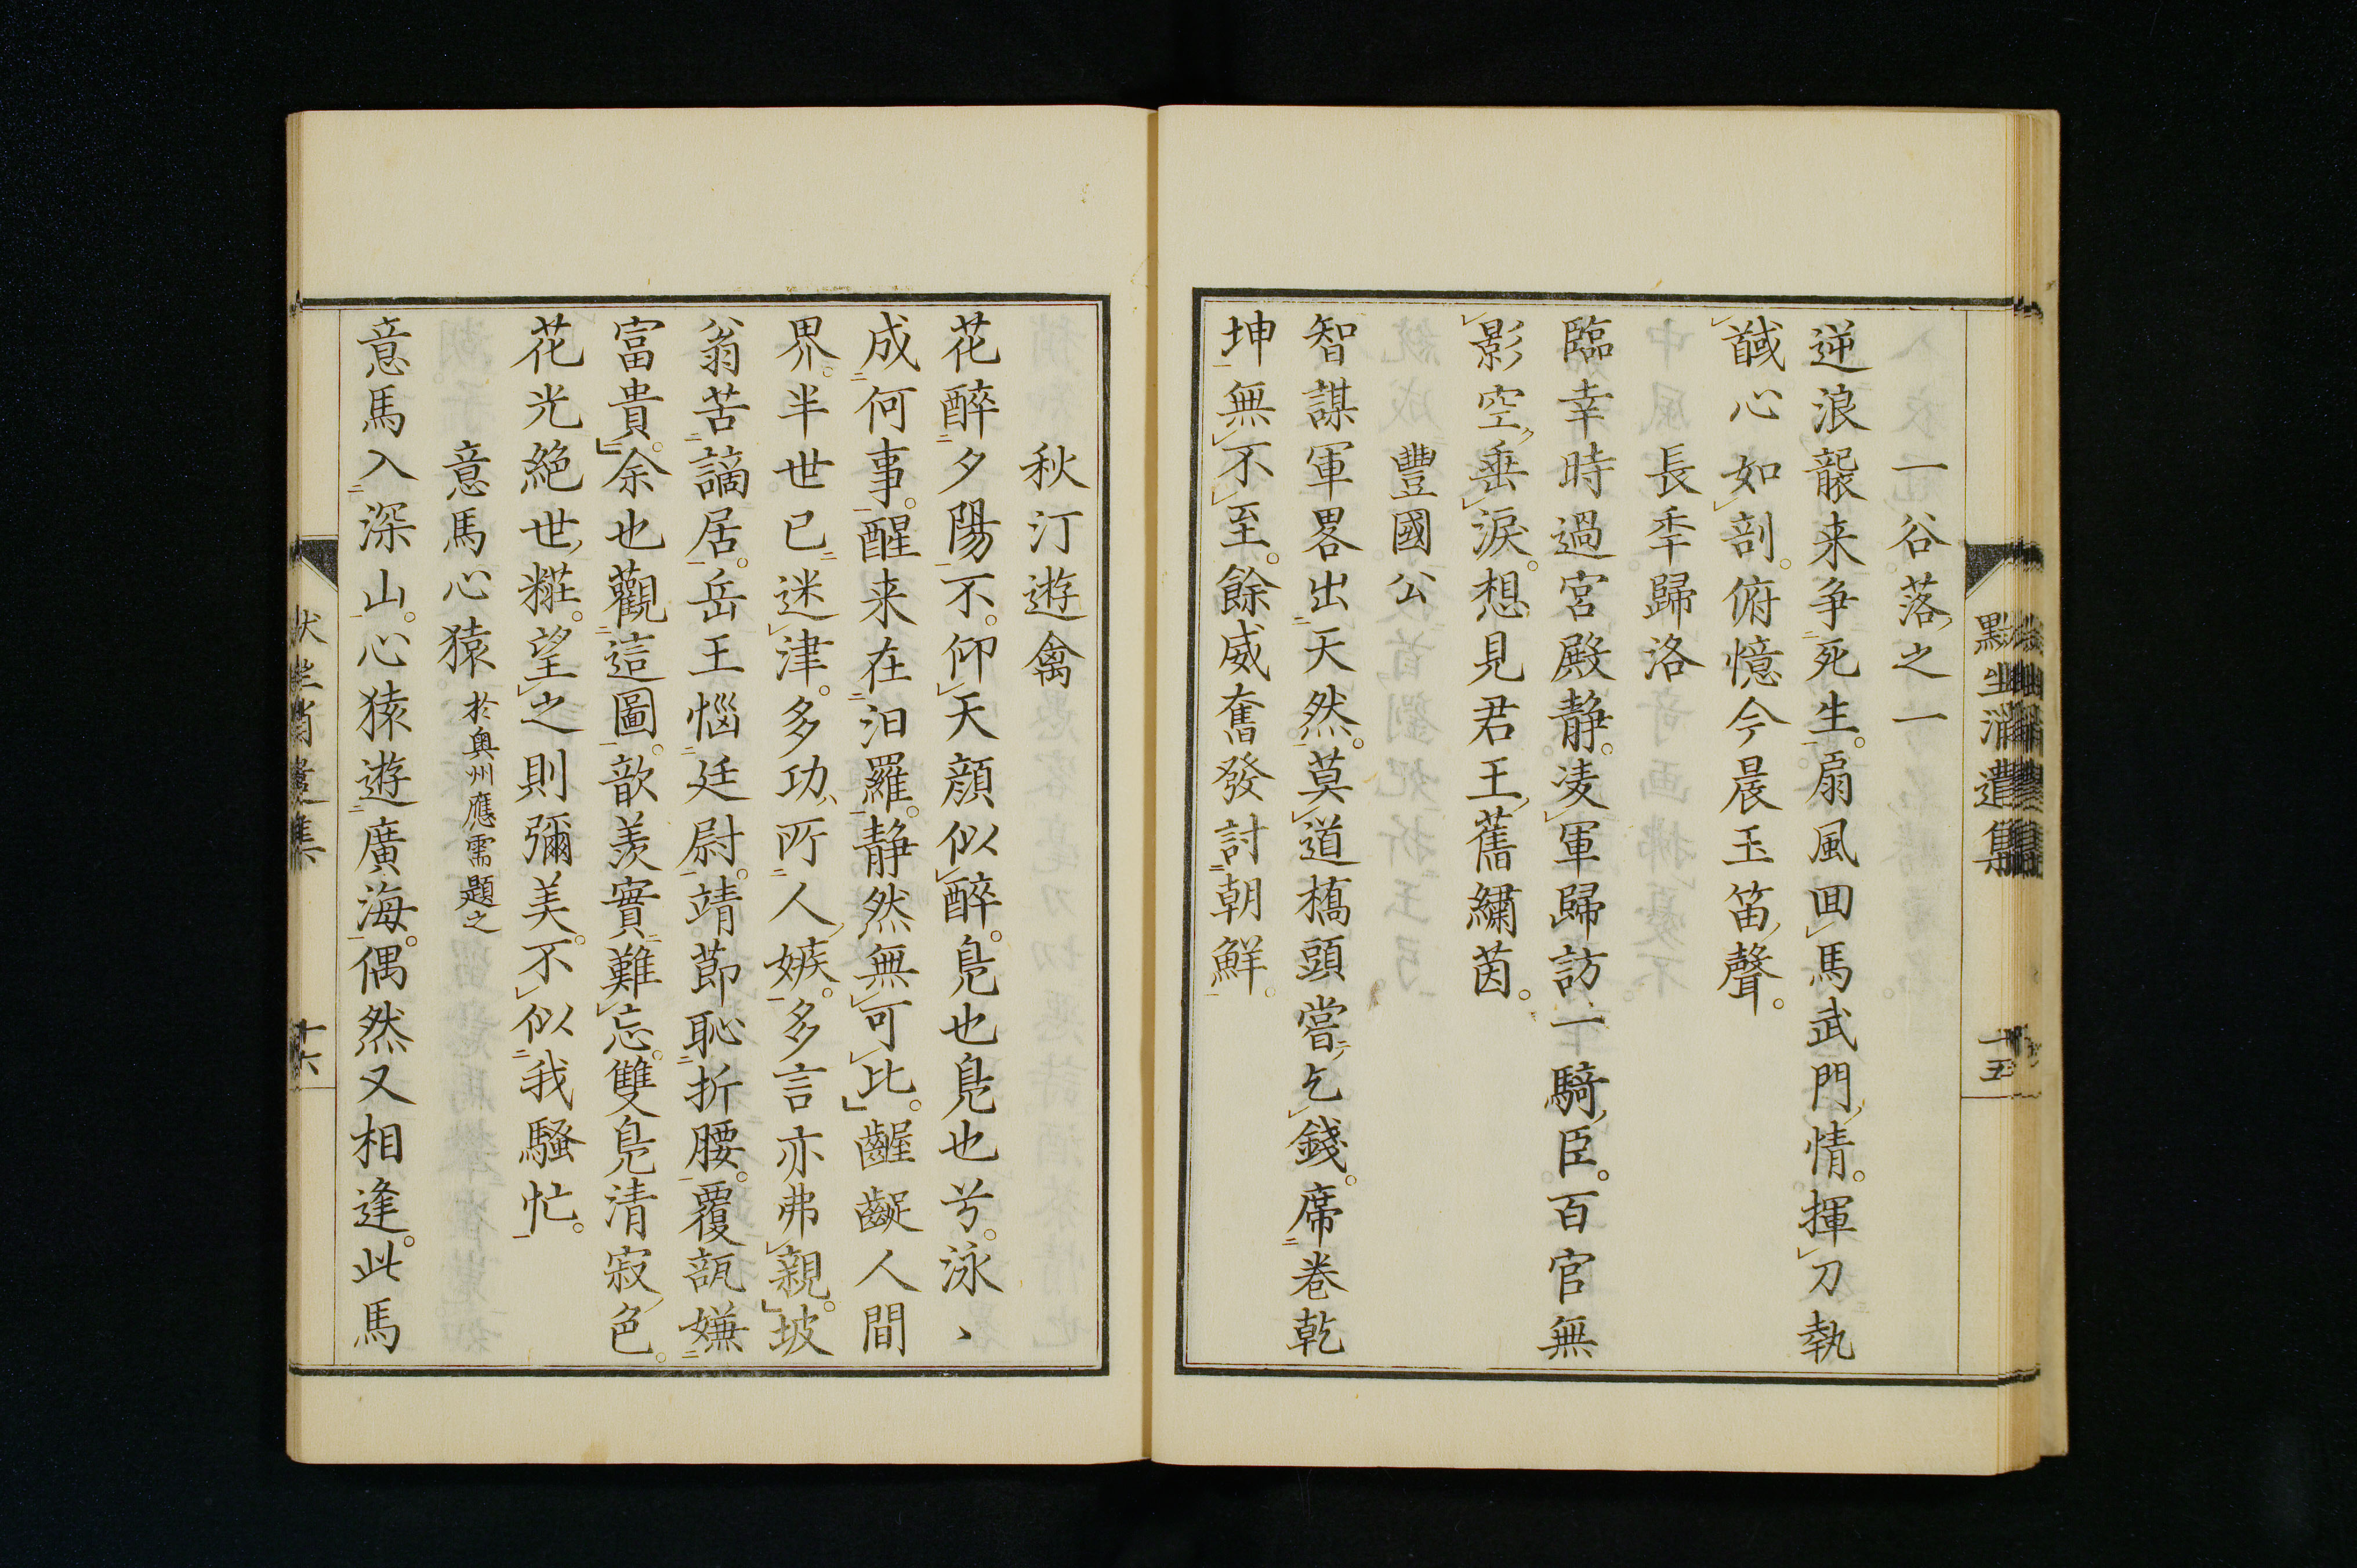 一谷落之一
逆浪襲来争死生。扇風回馬武門情。揮刀執
馘心如剖。俯憶今晨玉笛聲。
長季歸洛
臨幸時過宮殿静。凌軍歸訪一騎臣。百官無
影空垂淚。想見君王舊繡茵。
豐國公
智謀軍畧出天然。莫道橋頭嘗乞錢。席巻乾
坤無不至。餘威奮發討朝鮮。
十五
秋汀遊禽
花醉夕陽不。仰天顔似醉。鳧也鳧也兮。泳、
成何事。醒来在汨羅。静然無可比。齷齪人間
界。半世已迷津。多功所人嫉。多言亦弗親。坡
翁苦謫居。岳王惱廷尉。靖節恥折腰。覆瓿嫌
富貴。余也觀這圖。歆羨實難忘。雙鳧清寂色。
花光絕世粧。望之則彌美。不似我騷忙。
意馬心猿 於奥州應需題之
意馬入深山。心猿遊廣海。偶然又相逢。此馬
十六